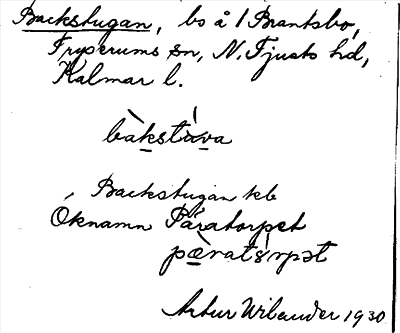 Backstugan, bs å 1 Brantsbo,
Tryserums sn, N. Tjusts hd,
Kalmar l.
bàkstúva
Backstugan kb
Öknamn Päratorpet
pæ̀ratórpət
Artur Wilander 1930